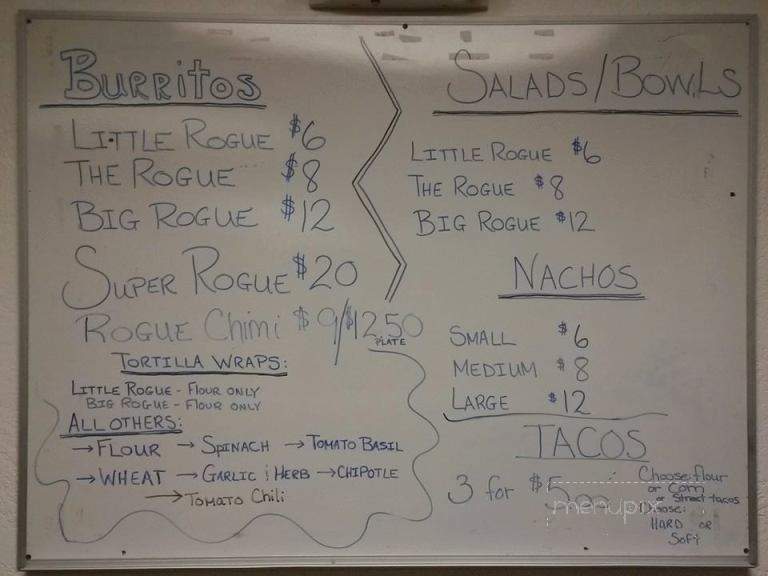 BURRITOS
LITTLE ROGUE $6
THE ROGUE $8
BIG ROGUE $12
SUPER ROGUE $20
ROGUE Chimi $9/$12.50
PLATE
TORTILLA WRAPS:
LITTLE ROGUE - FLOUR ONLY
BIG ROGUE - FLOUR ONLY
ALL OTHERS:
→ FLOUR → SPINACH → TOMATO BASIL
→ WHEAT → GARLIC & HERB → CHIPOTLE
→ TOMATO CHILI
SALADS/BOWLS
LITTLE ROGUE $6
THE ROGUE $8
BIG ROGUE $12
NACHOS
SMALL $6
MEDIUM $8
LARGE $12
TACOS
3 for $5.00
Choose: flour
or Corn
or Street tacos
Choose:
HARD OR
SOFT
menupix